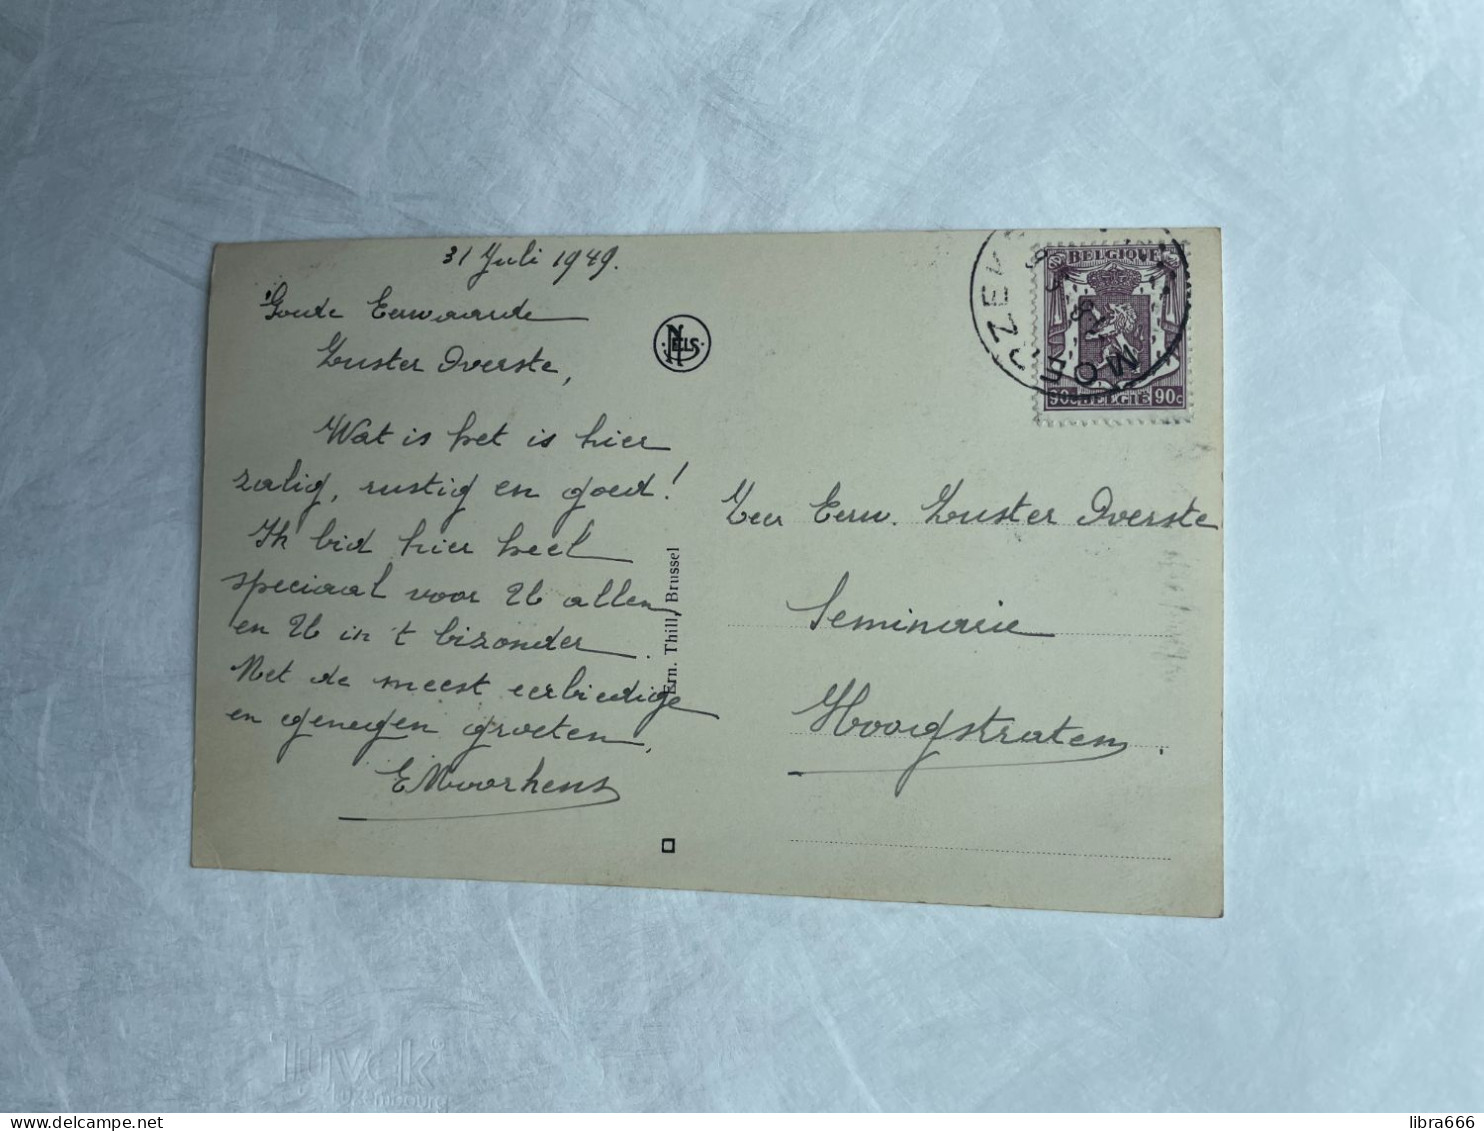 31 Juli 1949.
Goede Eerwaarde
Zuster Overste,
Wat is het is hier
zalig, rustig en goed!
Ik bid hier heel
speciaal voor U allen
en U in 't bizonder.
Met de meest eerbiedige
en genegen groeten,
NELS
Ern. Thill, Brussel
BELGIQUE
90c BELGIË 90c
MOERZEKE
Zeer Eerw. Zuster Overste
Seminarie
Hoogstraten.
Tyvek
Luxembourg
delcampe.net
libra666